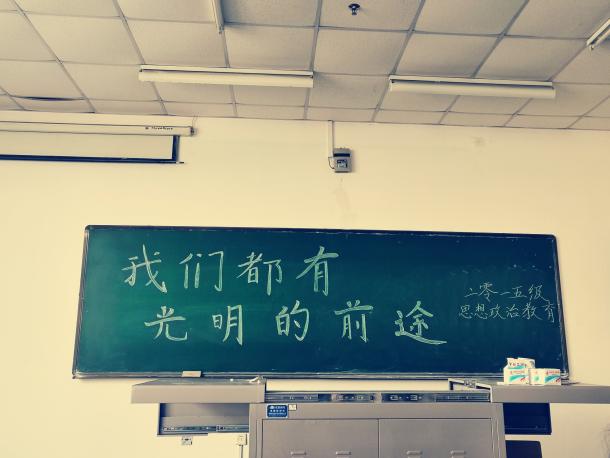 我们都有
光明的前途
二零一五级
思想政治教育